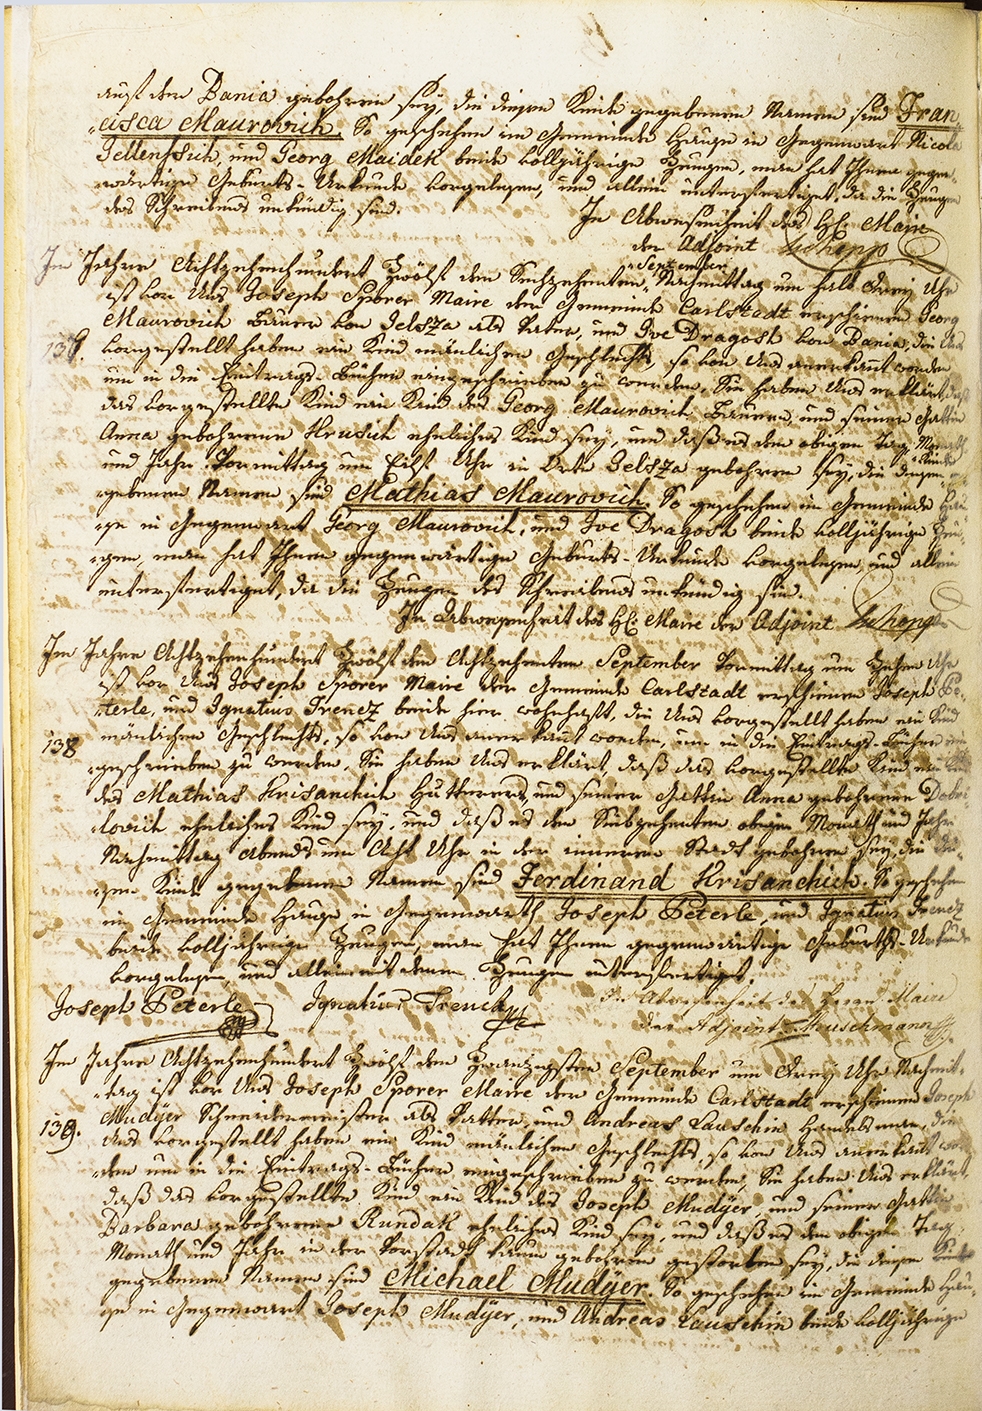 aus der Bania gebohren sey, die diesem Kinde gegebenen Namen sind Fran
cisca Maurovich. So geschehen im Gemeinde Hause in Gegenwart Nicola
und Georg Maidek beide volljährige Zeugen, man hat Ihnen gegen-
wärtige Geburts-Urkunde vorgelesen, und allein unterfertiget, da die Zeugen
des Schreibens unkündig sind. In Abwesenheit des H: Maire
der Adjoint
Im Jahre Achtzehenhundert Zwölf den Sechzehenten September Nachmittag um halb drey Uhr
ist vor Uns Joseph Sporer Maire der Gemeinde Carlstadt erschienen Georg
Maurovich Bauer von Jelsza als Vater, und Ive Dragosh von Bania, die Uns
137. vorgestellt haben ein Kind mänlichen Geschlechts, so von Uns anerkannt worden
um in die Eintrags-Bücher eingeschrieben zu werden, Sie haben Uns erklärt, daß
das vorgestellte Kind ein Kind des Georg Maurovich Bauern, und seiner Gattin
Anna gebohrene Hrusich eheliches Kind sey, und daß es den obigen Tag, Monath
und Jahr Vormittag um Eilf Uhr in Orte Jelsza gebohren sey, die diesem Kinde ge
gebenen Namen sind Mathias Maurovich. So geschehen im Gemeinde Hau
se in Gegenwart Georg Maurovich, und Ive Dragosh beide volljährige Zeu-
gen, man hat Ihnen gegenwärtige Geburts-Urkunde vorgelesen, und allein
unterfertiget, da die Zeugen des Schreibens unkündig sind.
In Abwesenheit des H: Maire der Adjoint
Im Jahre Achtzehenhundert Zwölf den Achtzehenten September Vormittag um Zehen Uhr
ist vor Uns Joseph Sporer Maire der Gemeinde Carlstadt erschienen Joseph Pe-
terle, und Ignatius Trencz beide hier wohnhaft, die Uns vorgestellt haben ein Kind
138 mänlichen Geschlechts, so von Uns anerkannt worden, um in die Eintrags-Bücher ein
geschrieben zu werden, Sie haben Uns erklärt, daß das vorgestellte Kind ein Kind
des Mathias Krisanchich Hutterers, und seiner Gattin Anna gebohrene Dobri-
lovich eheliches Kind sey, und daß es den Siebzehenten obigen Monath und Jahr
Nachmittag Abends um Acht Uhr in der inneren Stadt gebohren sey, die die-
sem Kinde gegebenen Namen sind Ferdinand Krisanchich. So geschehen
im Gemeinde Hause in Gegenwarth Joseph Peterle, und Ignatius Trencz
beide volljährige Zeugen, man hat Ihnen gegenwärtige Geburths-Urkunde
vorgelesen, und allein mit denen Zeugen unterfertiget.
Joseph Peterle Ignatius Trencz In Abwesenheit des Herrn Maire
der Adjoint Meuschmann
Im Jahre Achtzehenhundert Zwölf den Zwanzigsten September um drey Uhr Nachmit-
tag ist vor Uns Joseph Sporer Maire der Gemeinde Carlstadt erschienen Joseph
Mudyer Schneidermeister als Vatter, und Andreas Lauschin Handelsman, die
139. Uns vorgestellt haben ein Kind mänlichen Geschlechts, so von Uns anerkannt wor
den um in die Eintrags-Bücher eingeschrieben zu werden, Sie haben Uns erklärt,
daß das vorgestellte Kind ein Kind des Joseph Mudyer, und seiner Gattin
Barbara gebohrene Rundak eheliches Kind sey, und daß es den obigen Tag
Monath und Jahr in der Vorstadt kaum gebohren gestorben sey, die diesem Kinde
gegebenen Namen sind Michael Mudyer. So geschehen im Gemeinde Hau-
se in Gegenwart Joseph Mudyer, und Andreas Lauschin beide volljährige